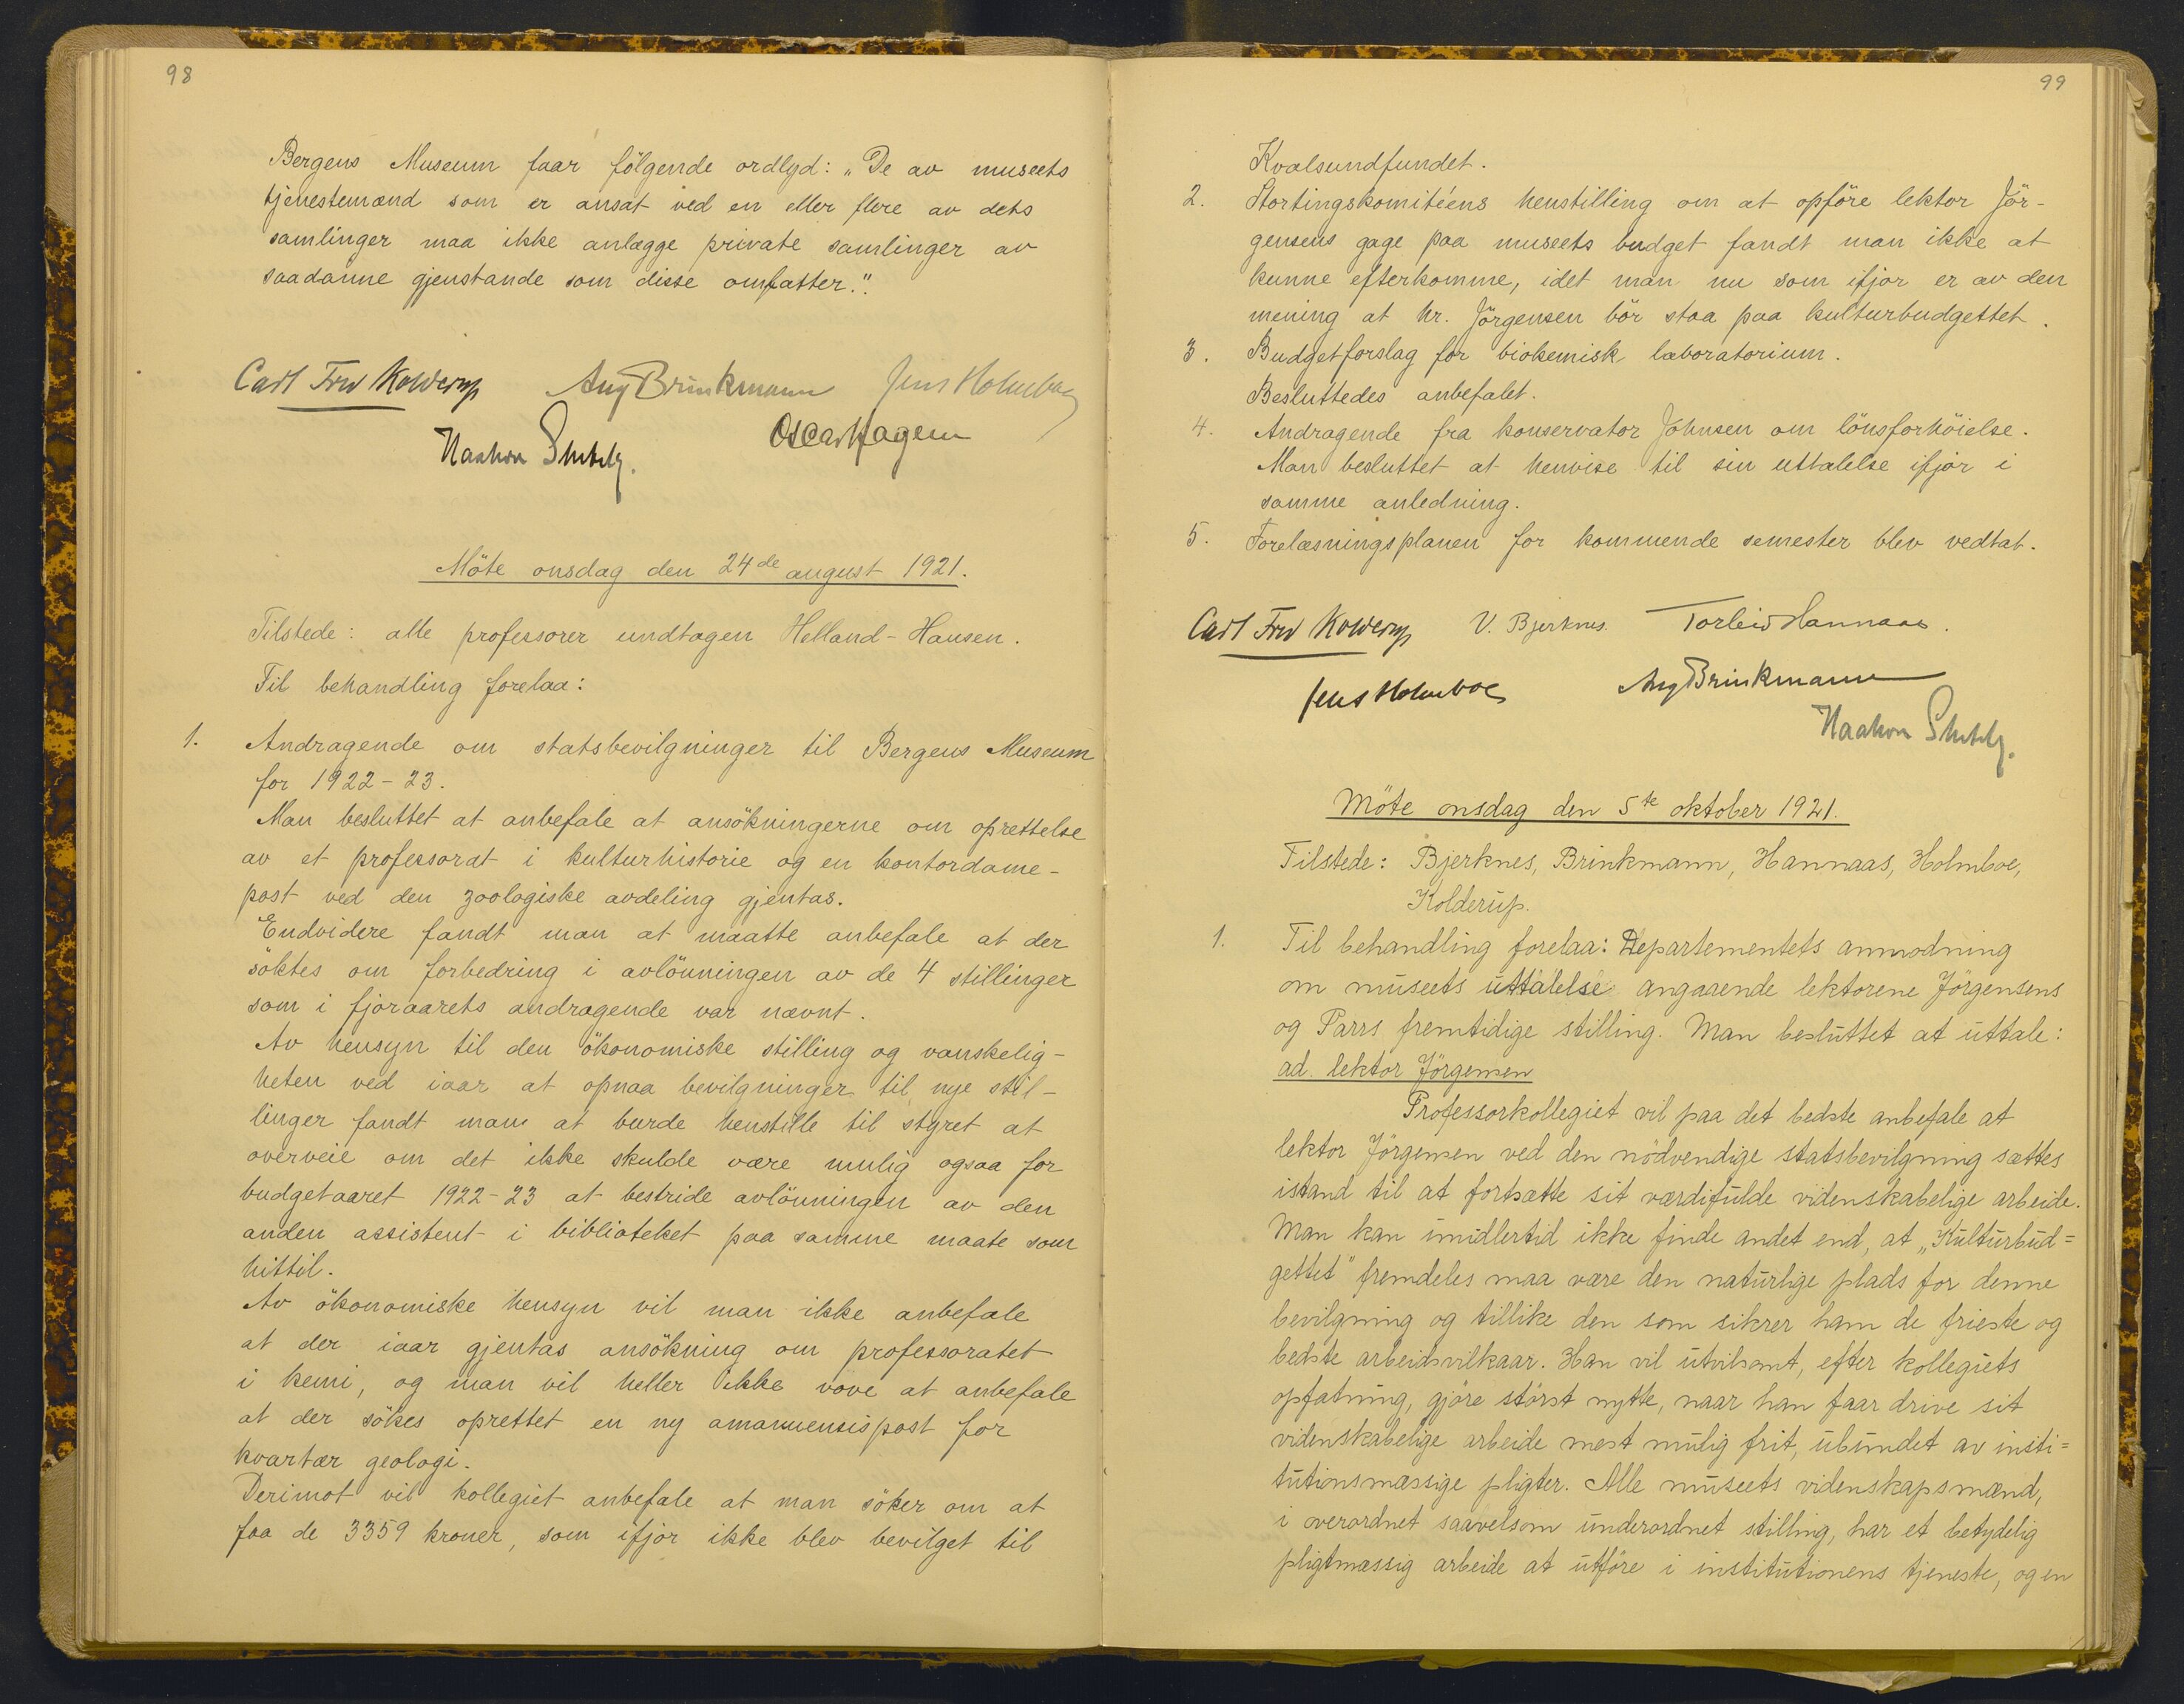 98
Bergens Museum faar fölgende ordlyd: „De av museets
tjenestemænd som er ansat ved en eller flere av dets
samlinger maa ikke anlægge private samlinger av
saadanne gjenstande som disse omfatter.".
Carl Fred Kolderup Aug Brinkmann Jens Holmboe
Haakon Shetelig. Oscar Hagem
Möte onsdag den 24de august 1921.
Tilstede: alle professorer undtagen Helland-Hansen.
Til behandling forelaa:
1. Andragende om statsbevilgninger til Bergens Museum
for 1922-23.
Man besluttet at anbefale at ansökningerne om oprettelse
av et professorat i kulturhistorie og en kontordame-
post ved den zoologiske avdeling gjentas.
Endvidere fandt man at maatte anbefale at der
söktes om forbedring i avlönningen av de 4 stillinger
som i fjoraarets andragende var nævnt.
Av hensyn til den ökonomiske stilling og vanskelig-
heten ved iaar at opnaa bevilgninger til nye stil-
linger fandt man at burde henstille til styret at
overveie om det ikke skulde være mulig ogsaa for
budgetaaret 1922-23 at bestride avlönningen av den
anden assistent i biblioteket paa samme maate som
hittil.
Av ökonomiske hensyn vil man ikke anbefale
at der iaar gjentas ansökning om professoratet
i kemi, og man vil heller ikke vove at anbefale
at der sökes oprettet en ny amanuensispost for
kvartær geologi.
Derimot vil kollegiet anbefale at man söker om at
faa de 3359 kroner, som ifjor ikke blev bevilget til
99
Kvalsundfundet.
2. Stortingskomitéens henstilling om at opföre lektor Jör-
gensens gage paa museets budget fandt man ikke at
kunne efterkomme, idet man nu som ifjor er av den
mening at hr. Jörgensen bör staa paa kulturbudgettet.
3. Budgetforslag for biokemisk laboratorium.
Besluttedes anbefalet.
4. Andragende fra konservator Johnsen om lönsforhöielse.
Man besluttet at henvise til sin uttalelse ifjor i
samme anledning.
5. Forelæsningsplanen for kommende semester blev vedtat.
Carl Fred Kolderup V. Bjerknes. Torleiv Hannaas.
Jens Holmboe Aug Brinkmann
Haakon Shetelig.
Möte onsdag den 5te oktober 1921.
Tilstede: Bjerknes, Brinkmann, Hannaas, Holmboe,
Kolderup.
1. Til behandling forelaa: Departementets anmodning
om museets uttalelse angaaende lektorene Jörgensens
og Parrs fremtidige stilling. Man besluttet at uttale:
ad. lektor Jörgensen
Professorkollegiet vil paa det bedste anbefale at
lektor Jörgensen ved den nödvendige statsbevilgning sættes
istand til at fortsætte sit værdifulde videnskabelige arbeide.
Man kan imidlertid ikke finde andet end, at „Kulturbud=
gettet" fremdeles maa være den naturlige plads for denne
bevilgning og tillike den som sikrer ham de frieste og
bedste arbeidsvilkaar. Han vil utvilsomt, efter kollegiets
opfatning, gjöre störst nytte, naar han faar drive sit
videnskabelige arbeide mest mulig frit, ubundet av insti=
tutionsmæssige pligter. Alle museets videnskapsmænd,
i overordnet saavelsom underordnet stilling, har et betydelig
pligtmæssig arbeide at utföre i institutionens tjeneste, og en